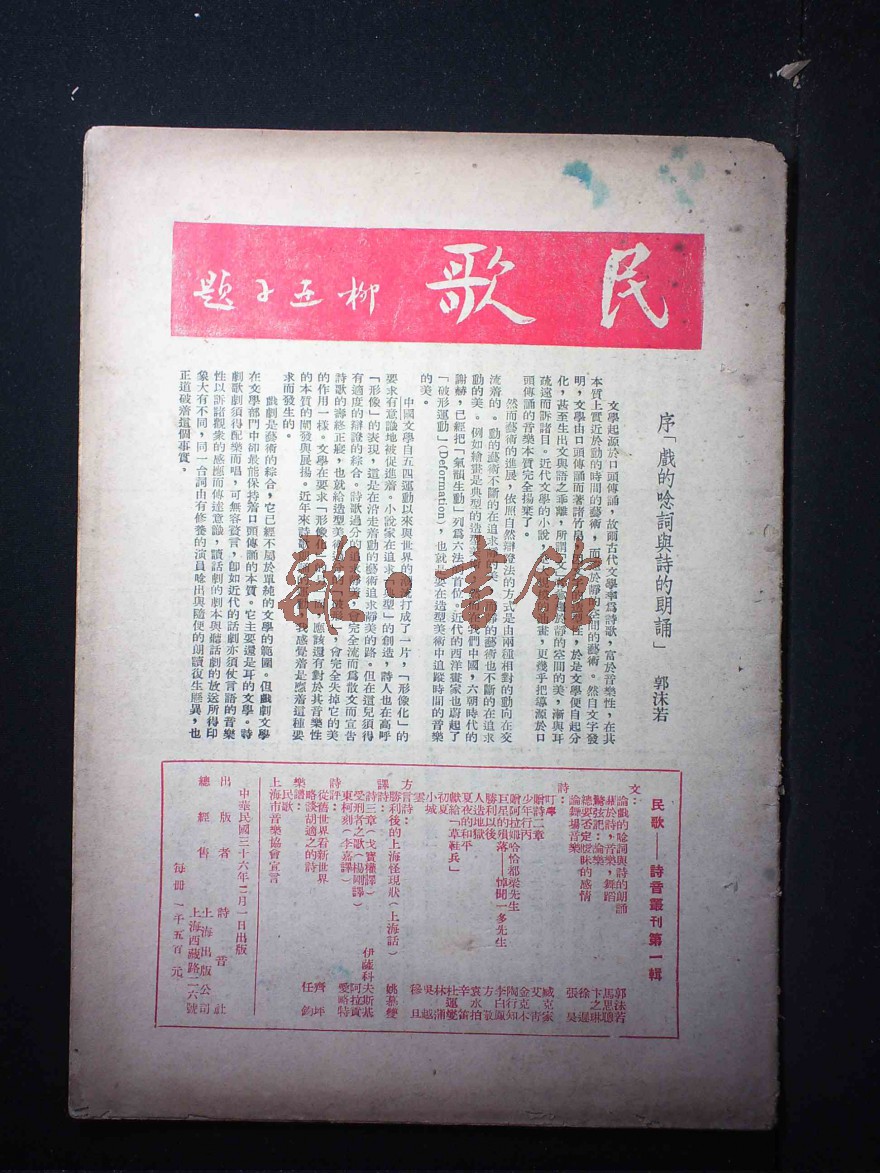 民歌
柳亞子題
序「戲的唸詞與詩的朗誦」
郭沫若
文學起源於口頭傳誦，故爾古代文學率爲詩歌，富於音樂性，在其
本質上實近於動的時間的藝術，而
於靜的空間的藝術。然自文字發
明，文學由口頭傳誦而著諸竹帛
於是文學便自起分
化，甚至生出文與語之乖離，所謂
靜的空間的美，漸與耳
疏遠而訴諸目。近代文學的小說，
畫，更幾乎把導源於口
頭傳誦的音樂本質完全揚棄了。
然而藝術的進展，依照自然辯證法的方式是由兩種相對的動向在交
流着的。動的藝術不斷的在追求靜的美，
靜的藝術也不斷的在追求
動的美。例如繪畫是典型的造型美術，
在我們中國，六朝時代的
謝赫，已經把「氣韻生動」列爲六法之首位。近代的西洋畫家也蔚起了
「破形運動」(Deformation)，也就是要在造型美術中追蹤時間的音樂
的美。
中國文學自五四運動以來與世界的
流打成了一片，「形像化」的
要求有意識地被促進着。小說家在追求「典型」的創造，詩人也在高呼
「形像」的表現，這是在沿走着動的藝術追求靜美的路。但在這兒須得
有適度的辯證的綜合。詩歌過分的追求
，會完全流而爲散文而宣告
詩歌的壽終正寢，也就給造型美術過分的
，會完全失掉它的美
的作用一樣。文學在要求「形像化」的
，應該還有對於其音樂性
的本質的闡發與展揚。近年來詩歌
我感覺着是應着這種要
求而發生的。
戲劇是藝術的綜合，它已經不屬於單純的文學的範圍。但戲劇文學
在文學部門中卻最能保持着口頭傳誦的本質。它主要還是耳的文學。詩
劇歌劇須得配樂而唱，可無容贅言，卽如近代的話劇亦須使言語的音樂
性以訴諸觀衆的感應而傳達意識，讀話劇的劇本與聽話劇的放送所得印
象大有不同，同一台詞由有修養的演員唸出與隨便的朗讀復生懸異，也
正道破着這個事實。
民歌——詩音叢刊第一輯
文：
論戲的唸詞與詩的朗誦 郭沫若
關於詩，音樂，舞蹈 馬思聰
論樂 卞之琳
總要否定曖昧的感情 徐遲
論舞場音樂 張昊
詩：
叮嚀 臧克家
贈詩二章 艾青
少年行丙 金克木
贈阿拉姆哈恰都梁先生 陶行知
巨星的殞落——悼聞一多先生 李白鳳
勝利以後 方敬
人造地獄 袁水拍
夏夜的和平 辛笛
獻給「草鞋兵」 杜運燮
初夏 林蒲
小城 吳越
雲 穆旦
方言詩：
勝利後的上海怪現狀(上海話) 姚慕雙
譯詩：
詩三章(戈寶權譯) 伊薩科夫斯基
受刑者之歌(楊剛譯) 阿拉貢
東柯刻(李嘉譯) 愛略特
詩評：
從舊世界看新世界 齊坪
略談胡適之的詩 任鈞
樂譜：
民歌
上海市音樂協會宣言
中華民國三十六年二月一日出版
出版者 詩音社
總經售 上海出版公司
上海西藏路一二六號
每冊一千五百元
雜·書館